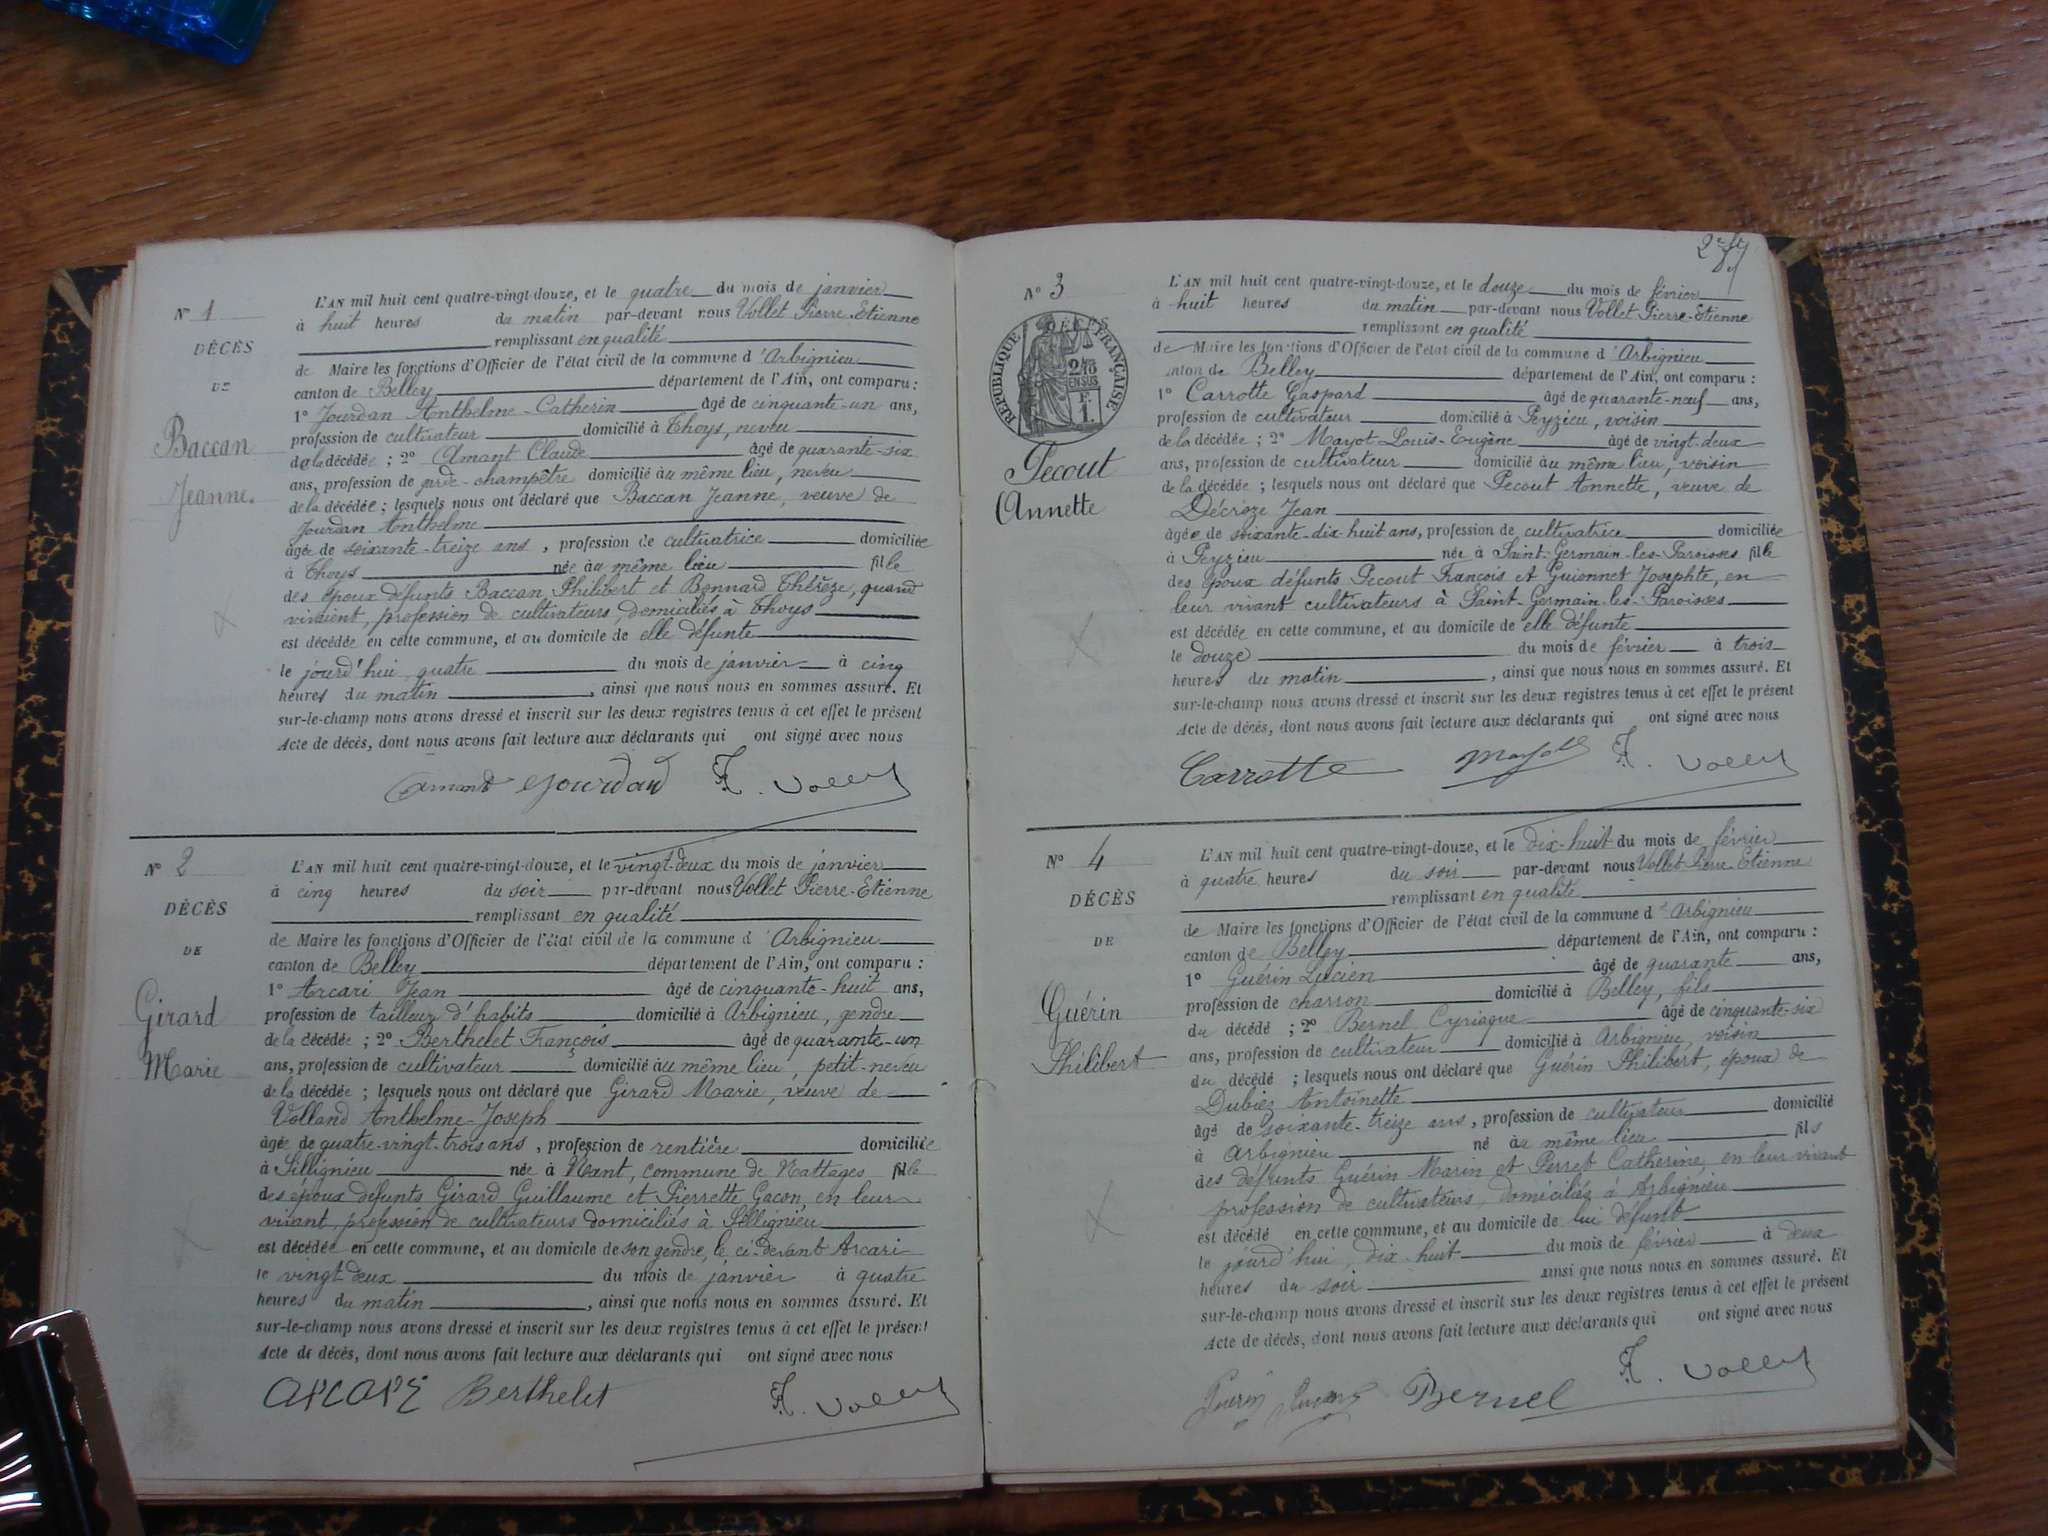 N° 1
DÉCÈS
DE
Baccan
Jeanne.
L'AN mil huit cent quatre-vingt-douze, et le quatre du mois de janvier
à huit heures du matin par-devant nous Vollet Pierre-Etienne
remplissant en qualité
de Maire les fonctions d'Officier de l'état civil de la commune d'Arbignieu
canton de Belley département de l'Ain, ont comparu :
1° Jourdan Anthelme-Catherin âgé de cinquante-un ans,
profession de cultivateur domicilié à Thoys, neveu
de la décédée ; 2° Amant Claude âgé de quarante-six
ans, profession de garde-champêtre domicilié au même lieu, neveu
de la décédée ; lesquels nous ont déclaré que Baccan Jeanne, veuve de
Jourdan Anthelme
âgée de soixante-treize ans, profession de cultivatrice domiciliée
à Thoys née au même lieu fille
des époux défunts Baccan Philibert et Bonnard Thérèze, quand
vivaient, profession de cultivateurs, domiciliés à Thoys
est décédée en cette commune, et au domicile de elle défunte
le jourd'hui quatre du mois de janvier à cinq
heures du matin, ainsi que nous nous en sommes assuré. Et
sur-le-champ nous avons dressé et inscrit sur les deux registres tenus à cet effet le présent
Acte de décès, dont nous avons fait lecture aux déclarants qui ont signé avec nous
Amant Jourdan Vollet
N° 2
DÉCÈS
DE
Girard
Marie
L'AN mil huit cent quatre-vingt-douze, et le vingt-deux du mois de janvier
à cinq heures du soir par-devant nous Vollet Pierre-Etienne
remplissant en qualité
de Maire les fonctions d'Officier de l'état civil de la commune d'Arbignieu
canton de Belley département de l'Ain, ont comparu :
1° Arcari Jean âgé de cinquante-huit ans,
profession de tailleur d'habits domicilié à Arbignieu, gendre
de la décédée ; 2° Berthelet François âgé de quarante-un
ans, profession de cultivateur domicilié au même lieu, petit-neveu
de la décédée ; lesquels nous ont déclaré que Girard Marie, veuve de
Volland Anthelme-Joseph
âgée de quatre-vingt-trois ans, profession de rentière domiciliée
à Sillignieu née à Nant, commune de Nattages fille
des époux défunts Girard Guillaume et Pierrette Gacon, en leur
vivant, profession de cultivateurs domiciliés à Sillignieu
est décédée en cette commune, et au domicile de son gendre, le ci-devant Arcari
le vingt deux du mois de janvier à quatre
heures du matin, ainsi que nous nous en sommes assuré. Et
sur-le-champ nous avons dressé et inscrit sur les deux registres tenus à cet effet le présent
Acte de décès, dont nous avons fait lecture aux déclarants qui ont signé avec nous
arcari Berthelet Vollet
N° 3
RÉPUBLIQUE FRANÇAISE
Pecout
Annette
L'AN mil huit cent quatre-vingt-douze, et le douze du mois de février
à huit heures du matin par-devant nous Vollet Pierre-Etienne
remplissant en qualité
de Maire les fonctions d'Officier de l'état civil de la commune d'Arbignieu
canton de Belley département de l'Ain, ont comparu :
1° Carrotte Gaspard âgé de quarante-neuf ans,
profession de cultivateur domicilié à Peyzieu, voisin
de la décédée ; 2° Mayot Louis-Eugène âgé de vingt-deux
ans, profession de cultivateur domicilié au même lieu, voisin
de la décédée ; lesquels nous ont déclaré que Pecout Annette, veuve de
Décroze Jean
âgée de soixante-dix-huit ans, profession de cultivatrice domiciliée
à Peyzieu née à Saint-Germain-les-Paroisses fille
des époux défunts Pecout François et Guionnet Josephte, en
leur vivant cultivateurs à Saint-Germain-les-Paroisses
est décédée en cette commune, et au domicile de elle défunte
le douze du mois de février à trois
heures du matin, ainsi que nous nous en sommes assuré. Et
sur-le-champ nous avons dressé et inscrit sur les deux registres tenus à cet effet le présent
Acte de décès, dont nous avons fait lecture aux déclarants qui ont signé avec nous
Carrotte Mayot Vollet
N° 4
DÉCÈS
DE
Guérin
Philibert
L'AN mil huit cent quatre-vingt-douze, et le dix-huit du mois de février
à quatre heures du soir par-devant nous Vollet Pierre Etienne
remplissant en qualité
de Maire les fonctions d'Officier de l'état civil de la commune d'Arbignieu
canton de Belley département de l'Ain, ont comparu :
1° Guérin Lucien âgé de quarante ans,
profession de charron domicilié à Belley, fils
du décédé ; 2° Bernel Cyriaque âgé de cinquante-six
ans, profession de cultivateur domicilié à Arbignieu, voisin
du décédé ; lesquels nous ont déclaré que Guérin Philibert, époux de
Dubiez Antoinette
âgé de soixante-treize ans, profession de cultivateur domicilié
à Arbignieu né au même lieu fils
des défunts Guérin Marin et Perret Catherine, en leur vivant
profession de cultivateurs, domiciliés à Arbignieu
est décédé en cette commune, et au domicile de lui défunt
le jourd'hui, dix-huit du mois de février à deux
heures du soir ainsi que nous nous en sommes assuré. Et
sur-le-champ nous avons dressé et inscrit sur les deux registres tenus à cet effet le présent
Acte de décès, dont nous avons fait lecture aux déclarants qui ont signé avec nous
Bernel Vollet